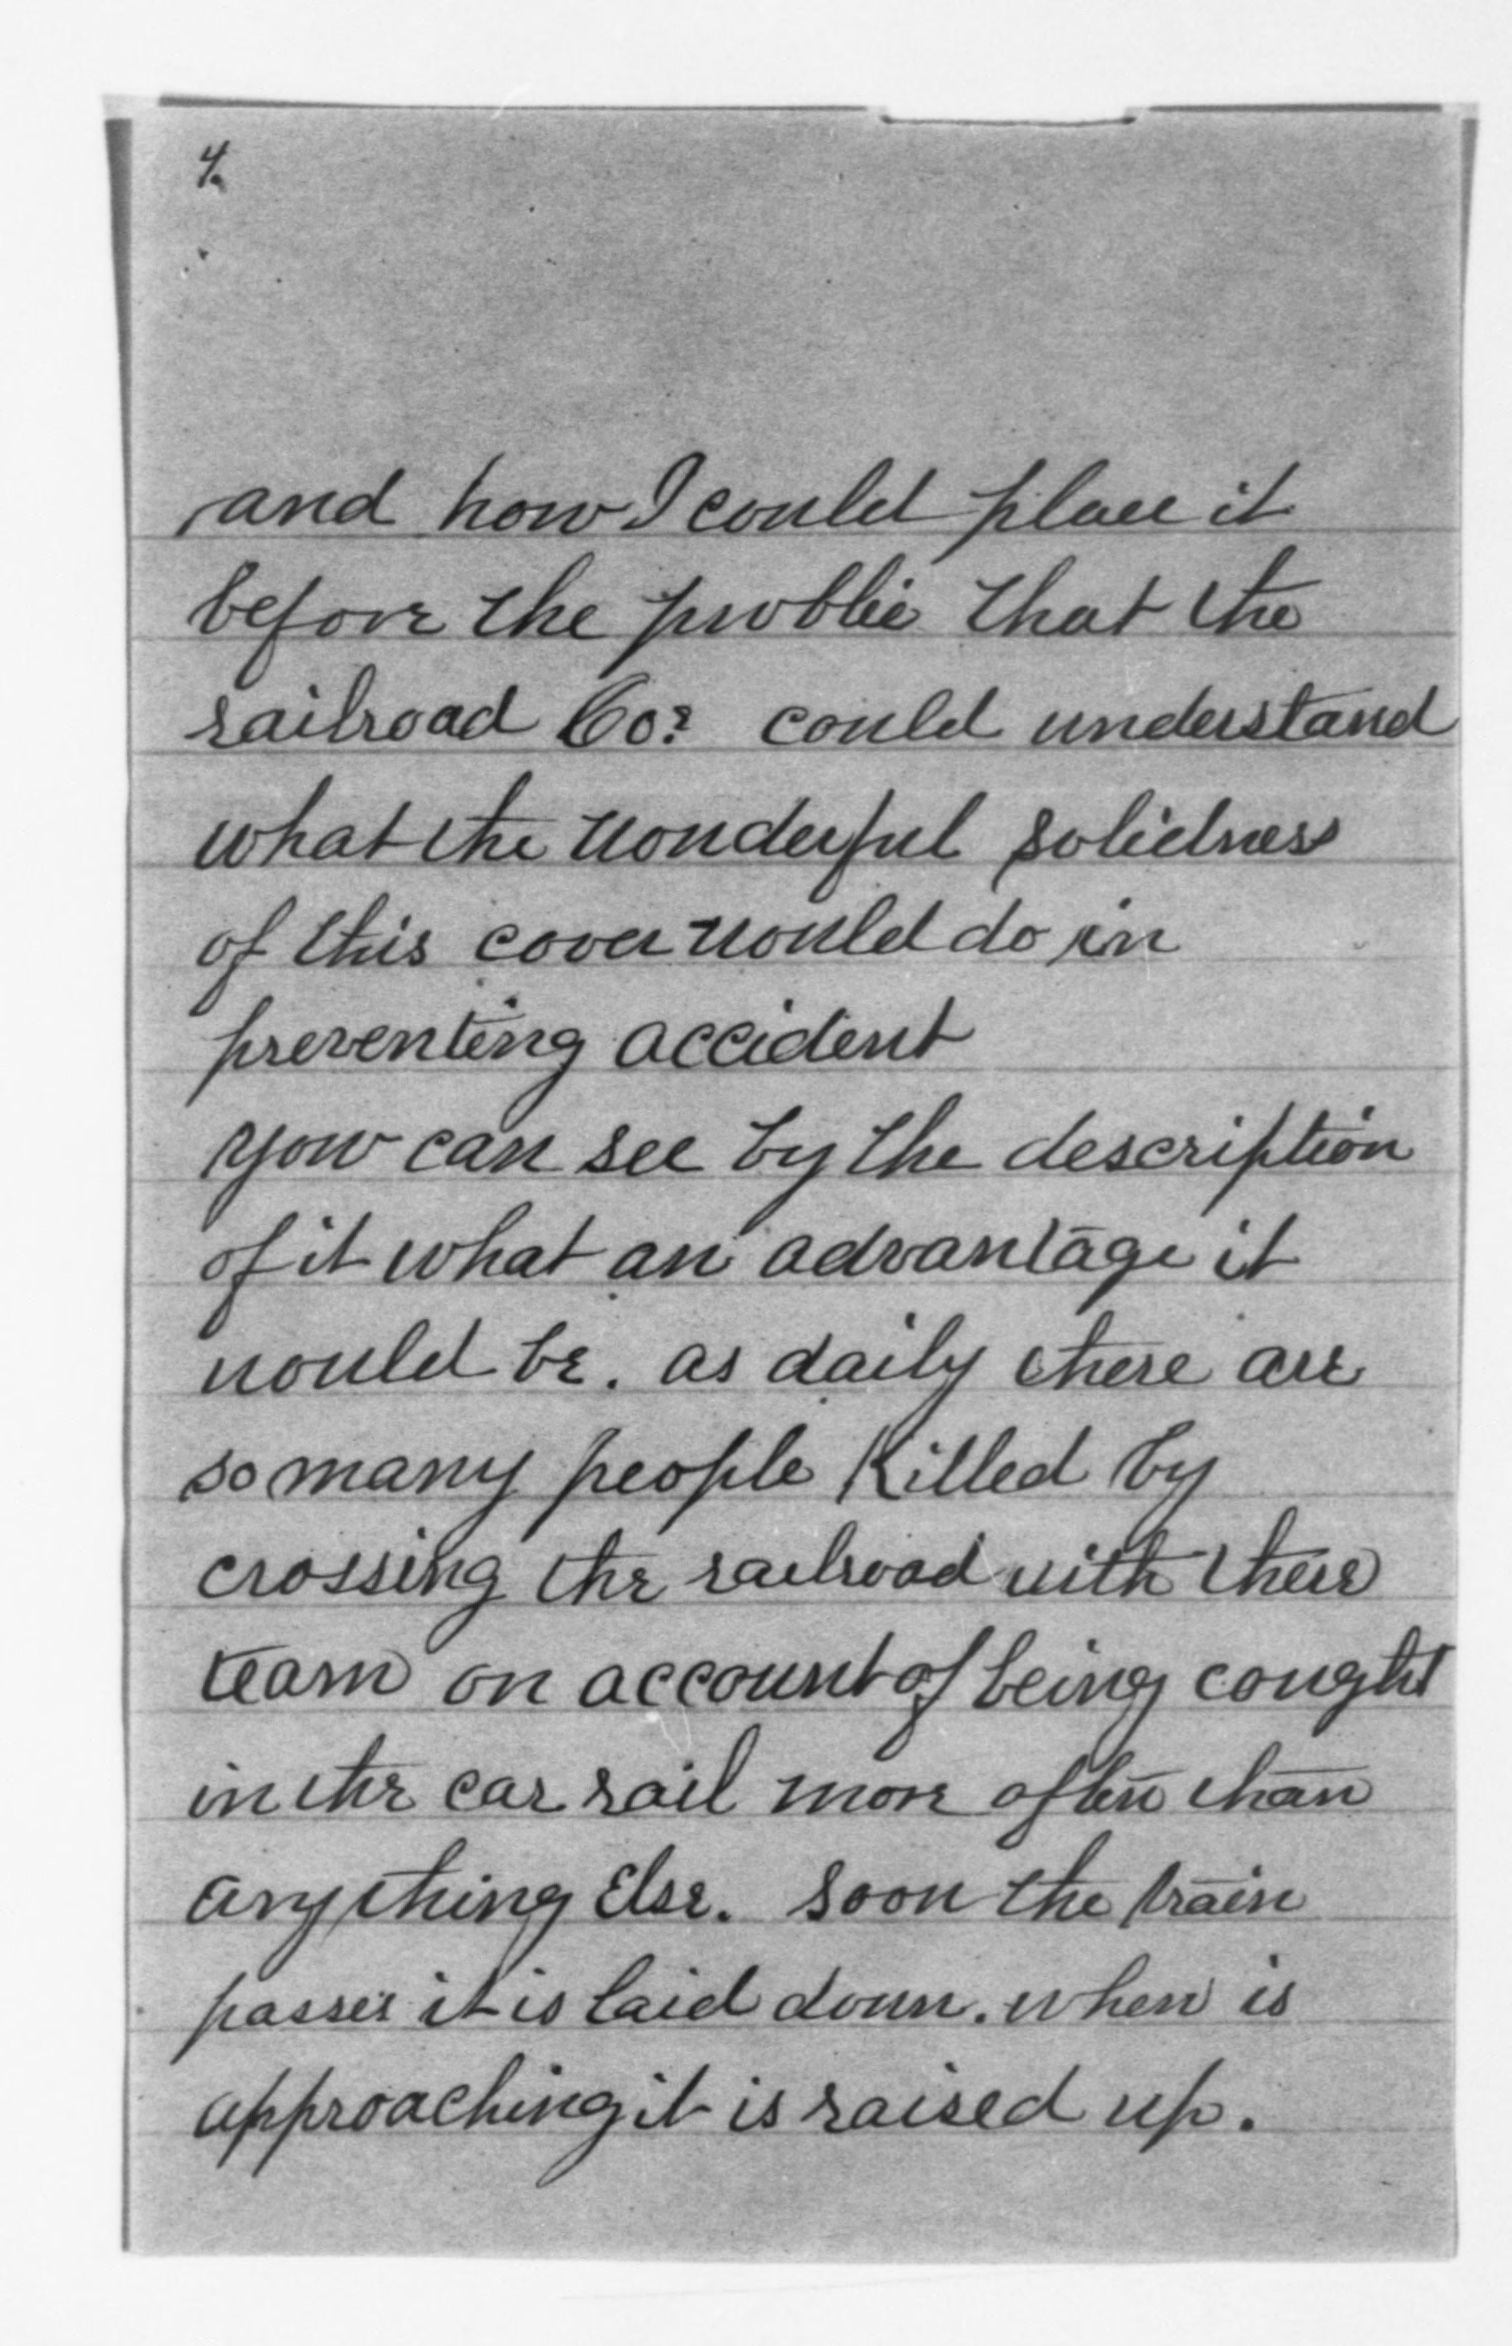 4.
and how I could place it
before the publlic that the
railroad Co? could understand
what the wonderful solidness
of this cover would do in
preventing accident
yow can see by the description
of it what an advantage it
would be. as daily there are
so many people Killed by
crossing the railroad with there
team on account of being cought
in the car rail more often than
anything Else. Soon the train
passes it is laid down. when is
approaching it is raised up.